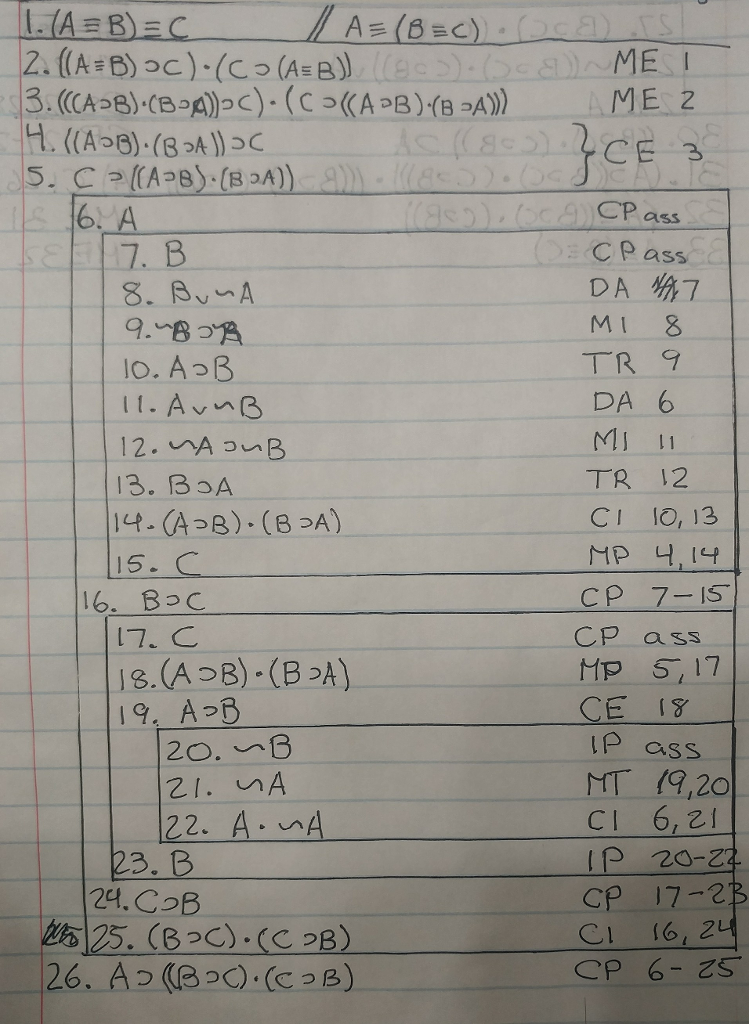 1. (A ≡ B) ≡ C // A ≡ (B ≡ C)
2. ((A ≡ B) ⊃ C) · (C ⊃ (A ≡ B)) ME 1
3. (((A ⊃ B) · (B ⊃ A)) ⊃ C) · (C ⊃ ((A ⊃ B) · (B ⊃ A))) ME 2
4. ((A ⊃ B) · (B ⊃ A)) ⊃ C
5. C ⊃ ((A ⊃ B) · (B ⊃ A)) } CE 3
6. A CP ass
7. B CP ass
8. B ∨ ~A DA 7
9. ~B ⊃ ~A MI 8
10. A ⊃ B TR 9
11. A ∨ ~B DA 6
12. ~A ⊃ ~B MI 11
13. B ⊃ A TR 12
14. (A ⊃ B) · (B ⊃ A) CI 10, 13
15. C MP 4, 14
16. B ⊃ C CP 7-15
17. C CP ass
18. (A ⊃ B) · (B ⊃ A) MP 5, 17
19. A ⊃ B CE 18
20. ~B IP ass
21. ~A MT 19, 20
22. A · ~A CI 6, 21
23. B IP 20-22
24. C ⊃ B CP 17-23
25. (B ⊃ C) · (C ⊃ B) CI 16, 24
26. A ⊃ ((B ⊃ C) · (C ⊃ B) CP 6-25